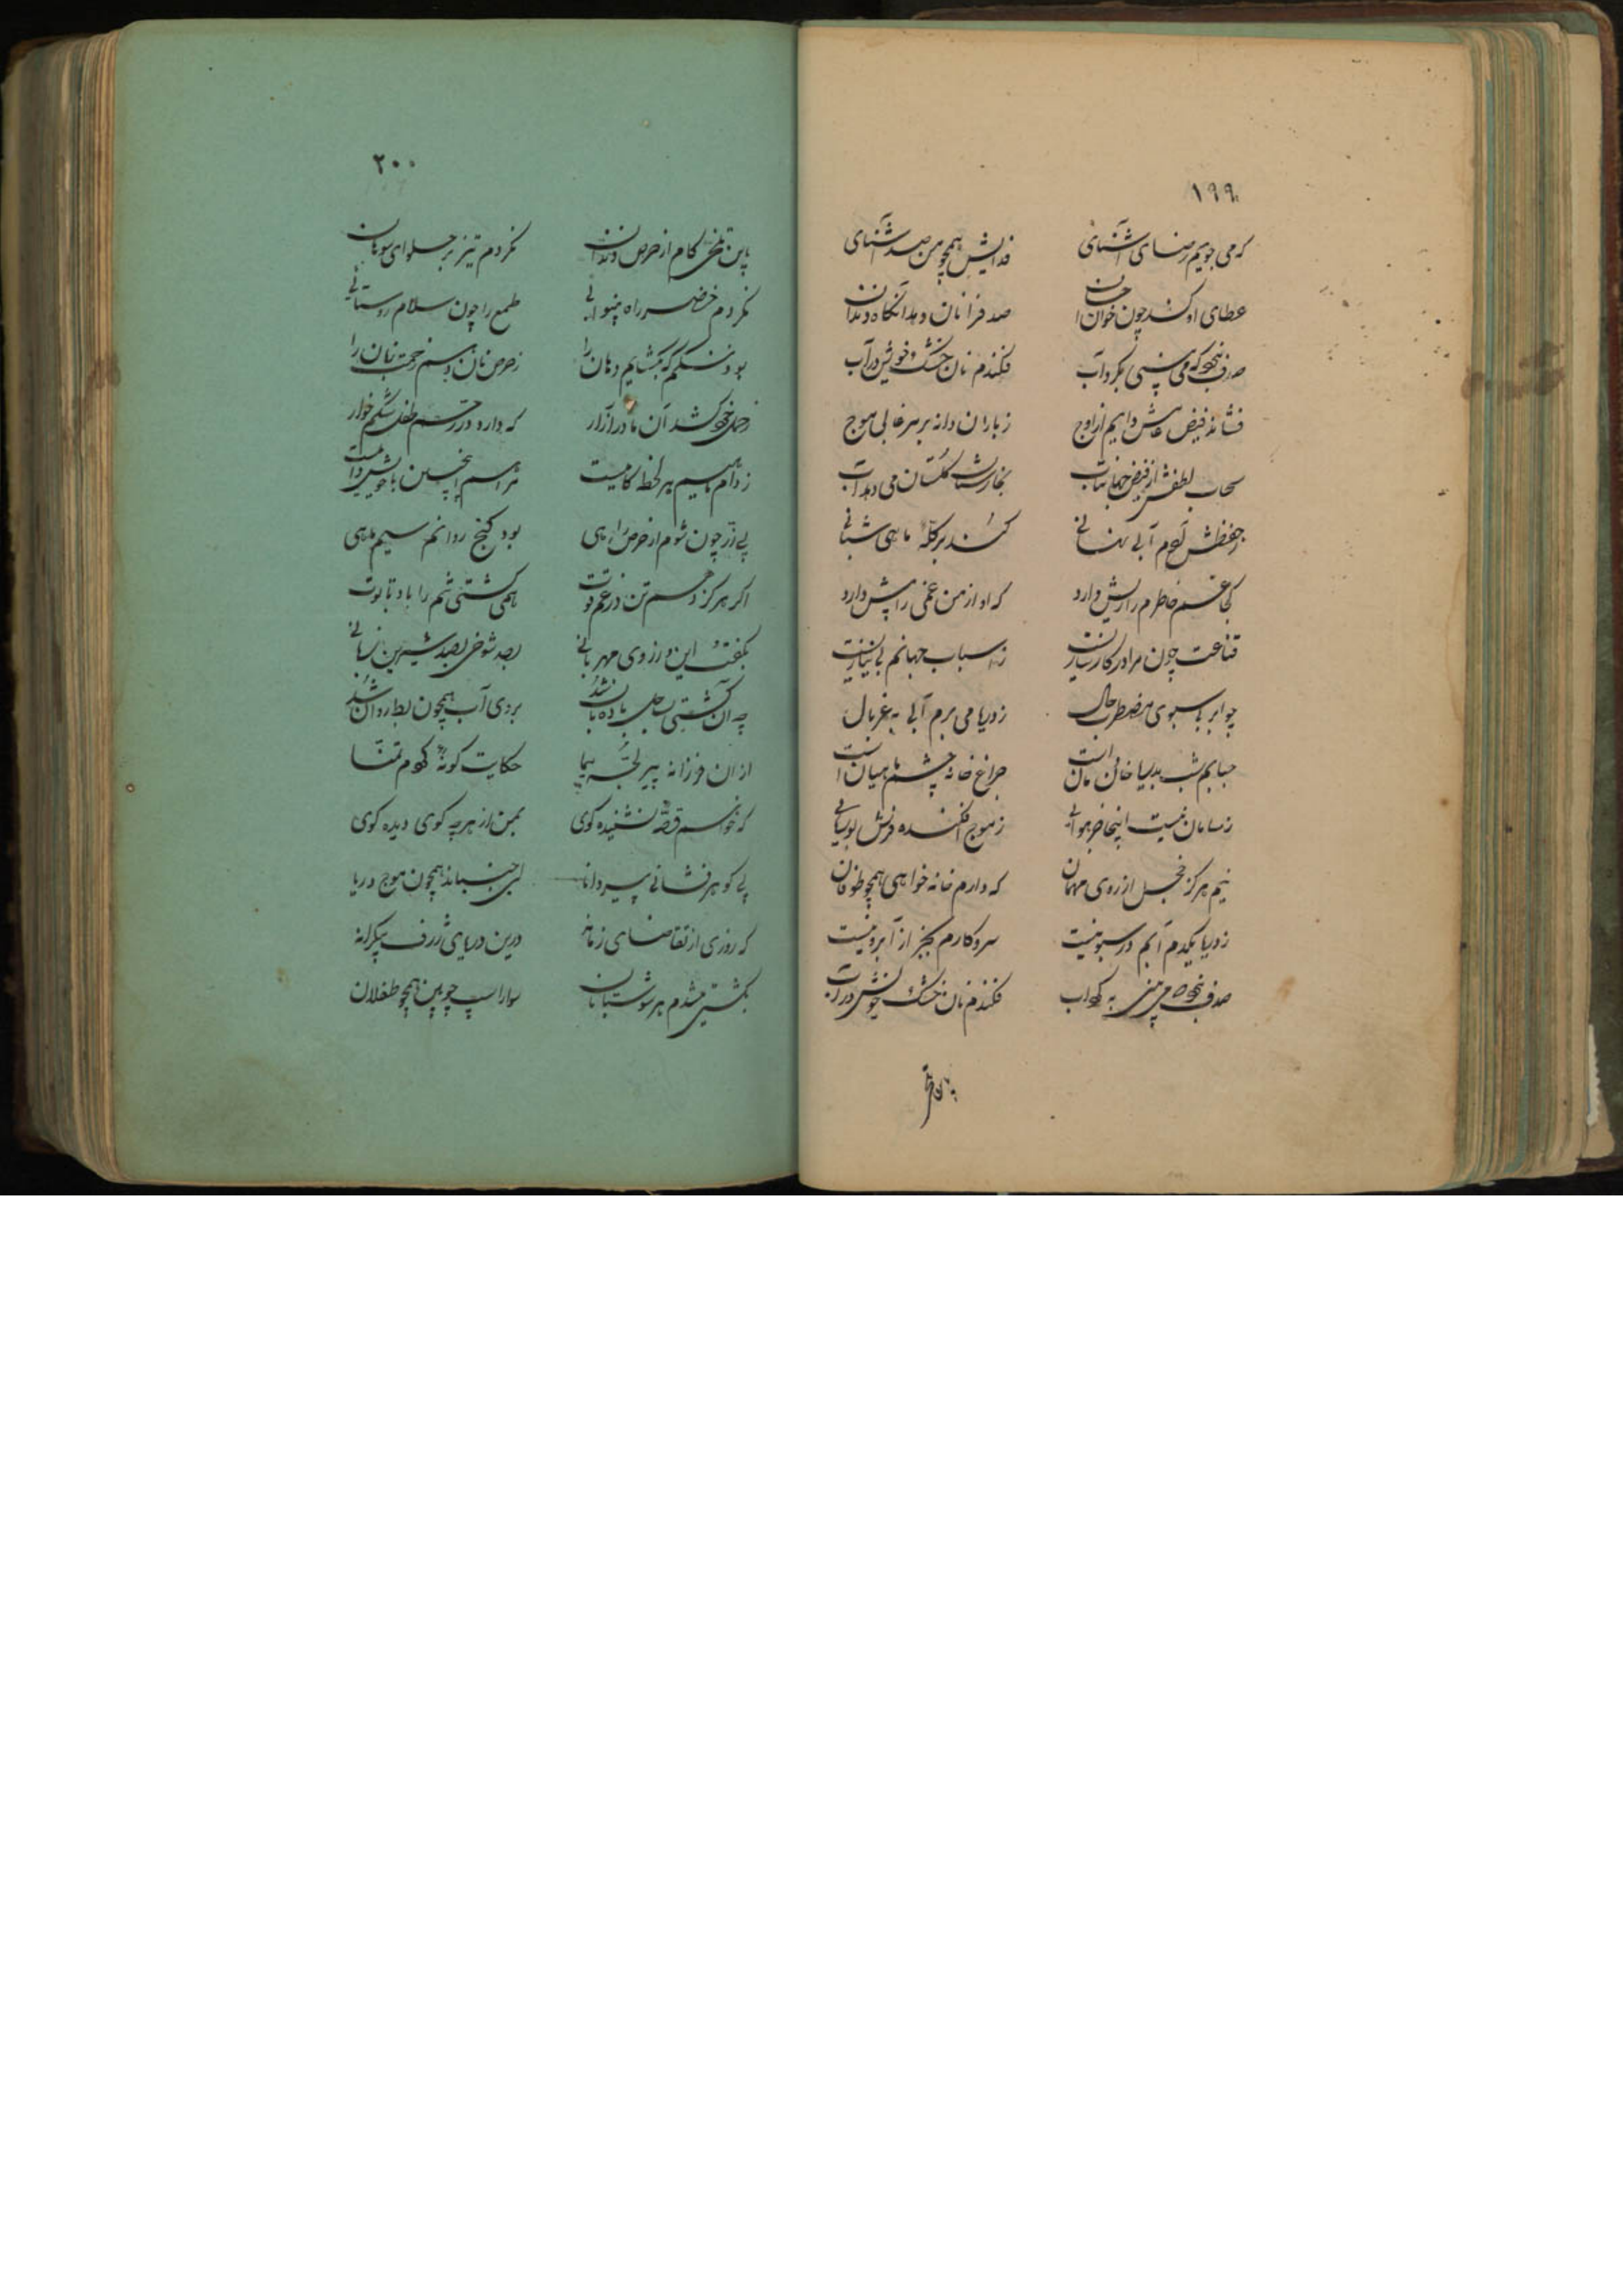 ۱۹۹
که می جویم رضای آشنائی فدایش همچو من صد آشنای
عطای او کشد چون خوان احسان صدف را نان دهد آنگاه دندان
صدف نبود که می بینی بگرداب فکندم نان خشک خویش در آب
فشاند فیض عامش دایم از اوج ز باران دانه بر مرغابی موج
سحاب لطفش از فیض جهانتاب بخارستان گلستان می دهد آب
ز حفظش گرم آبی نهانی کند بر گله ماهی شبانی
کجا غم خاطرم را ریش دارد که او از من غمی را پیش دارد
قناعت چون مرا در کارسازیست ز اسباب جهانم بی نیازیست
چو ابر بی سبوی مضطرب حال ز دریا می برم آبی به غربال
حبابم شب بدریا خان و مان است چراغ خانه چشم ماهیان است
ز سامان نیست اینجا جز هوائی ز موج افکنده فرش بوریائی
نیم هرگز خجل از روی مهمان که دارم خانه خواهی همچو طوفان
ز دریا یکدم آبم در سبو نیست سر و کارم بجز از آبرو نیست
صدف نبود که می بینی به گرداب فکندم نان خشک خویش در آب
۲۰۰
باین تلخی کام از حرص دندان نکردم تیز بر حلوای سوهان
نکردم خضر راه بینوائی طمع را چون سلام روستائی
بود ننگم که بگشایم دهان را ز حرص نان دهم زحمت زبان را
خجل خواهد شد آن مادر آزار که دارد در رحم طفل شکم خوار
ز دام ماهیم هر لحظه کامیست مرا هم اینچنین با خویش دامیست
پی زر چون شوم از حرص راهی بود گنج روانم سیم ماهی
اگر هرگز دهم تن در غم قوت همی کشتی شم را باد تابوت
بگفت این و ز روی مهربانی بصد شوخی بصد شیرین زبانی
چو آن کشتی سوار بادبان شد بروی آب همچون بط روان شد
از آن فرزانه پیر لجه پیما حکایت گونه کردم تمنا
که خواهم قصه نشنیده گوی بمن از هر چه گوی دیده گوی
پی گوهرفشانی پیر دانا لبی جنباند همچون موج دریا
که روزی از تقاضای زمانه درین دریای ژرف بیکرانه
بکشتی میشدم هر سو شتابان سوار اسپ چوبین همچو طفلان